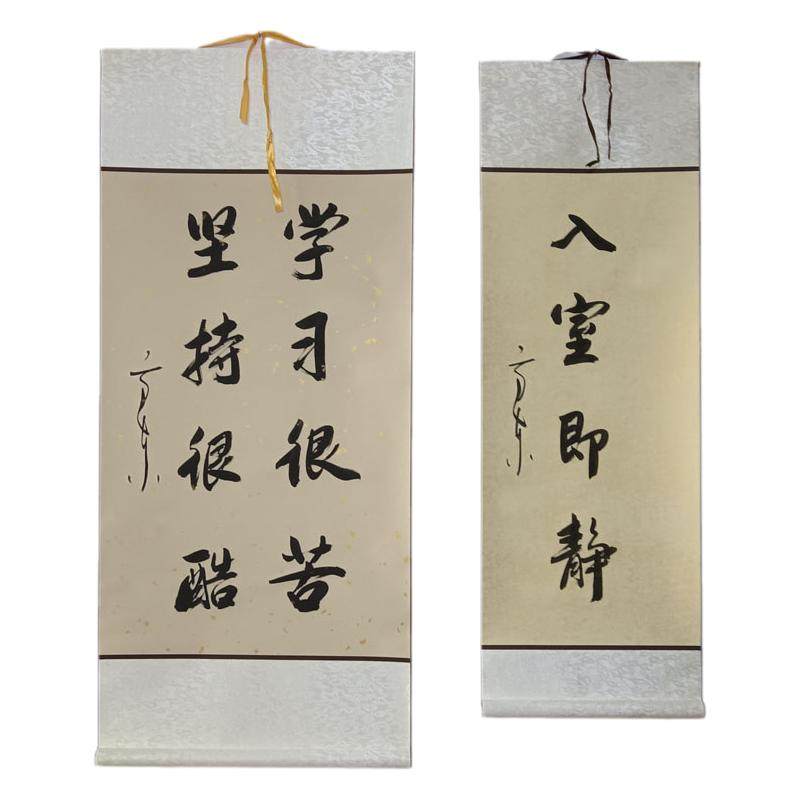 学习很苦
坚持很酷
入室即静